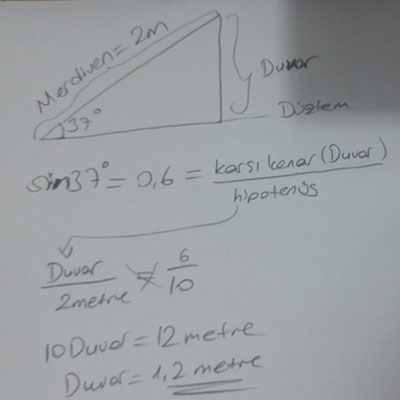 Merdiven = 2m
37°
Duvar
Düzlem
sin37° = 0,6 = karşı kenar (Duvar) / hipotenüs
Duvar / 2metre = 6 / 10
10 Duvar = 12 metre
Duvar = 1,2 metre